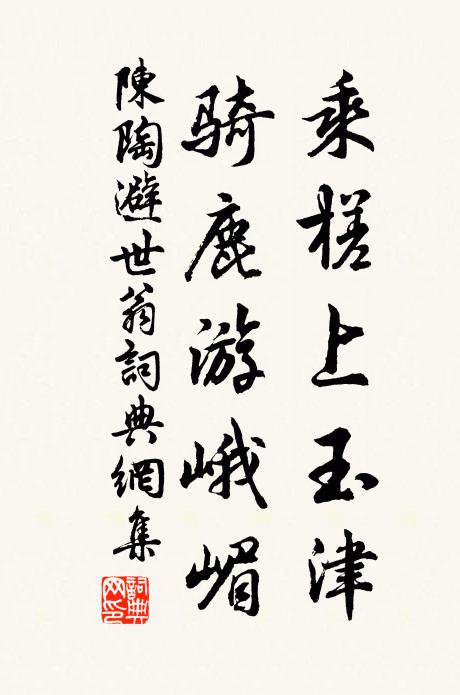 乘槎上玉津
骑鹿游峨嵋
陳陶避世翁詞典網集
詞典网印